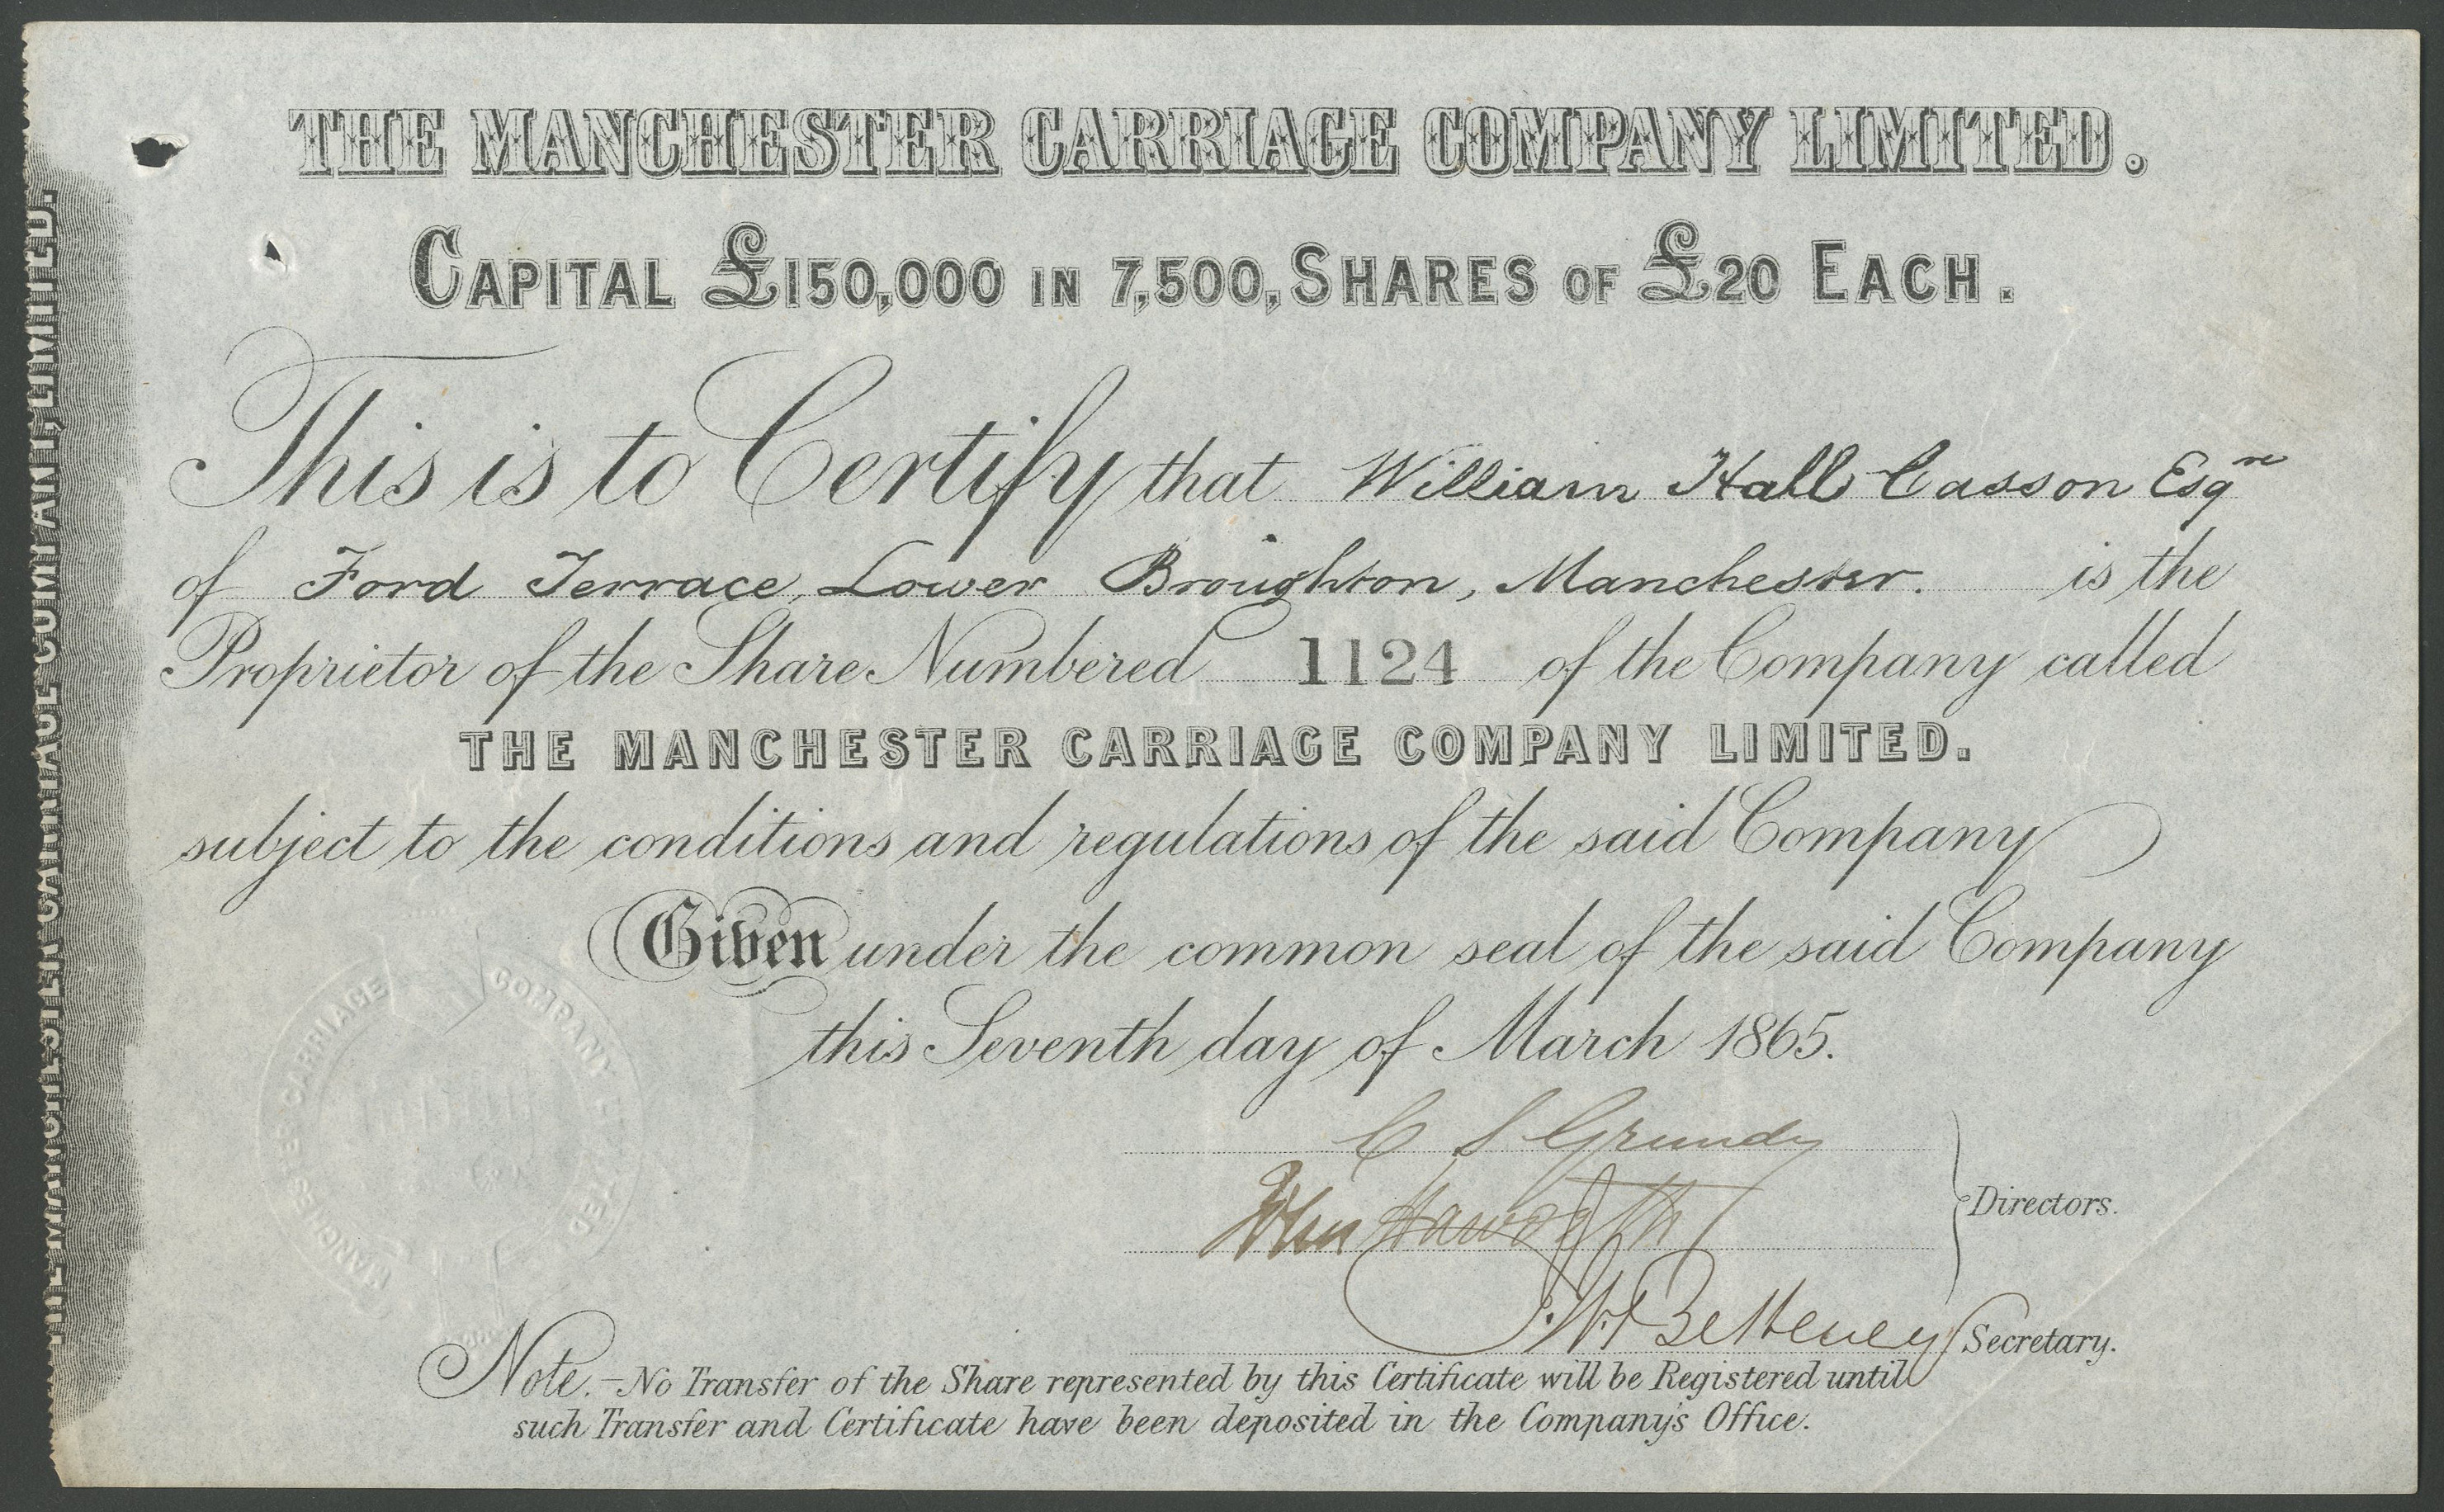 THE MANCHESTER CARRIAGE COMPANY LIMITED.
CAPITAL £150,000 IN 7,500, SHARES OF £20 EACH.
This is to Certify that William Hall Casson Esqre
of Ford Terrace, Lower Broughton, Manchester. is the
Proprietor of the Share Numbered 1124 of the Company called
THE MANCHESTER CARRIAGE COMPANY LIMITED.
subject to the conditions and regulations of the said Company
Given under the common seal of the said Company
this Seventh day of March 1865.
C S Grundy
John Haworth
Directors.
Secretary.
Note.-No Transfer of the Share represented by this Certificate will be Registered until
such Transfer and Certificate have been deposited in the Company's Office.
THE MANCHESTER CARRIAGE COMPANY, LIMITED.
MANCHESTER CARRIAGE COMPANY LIMITED